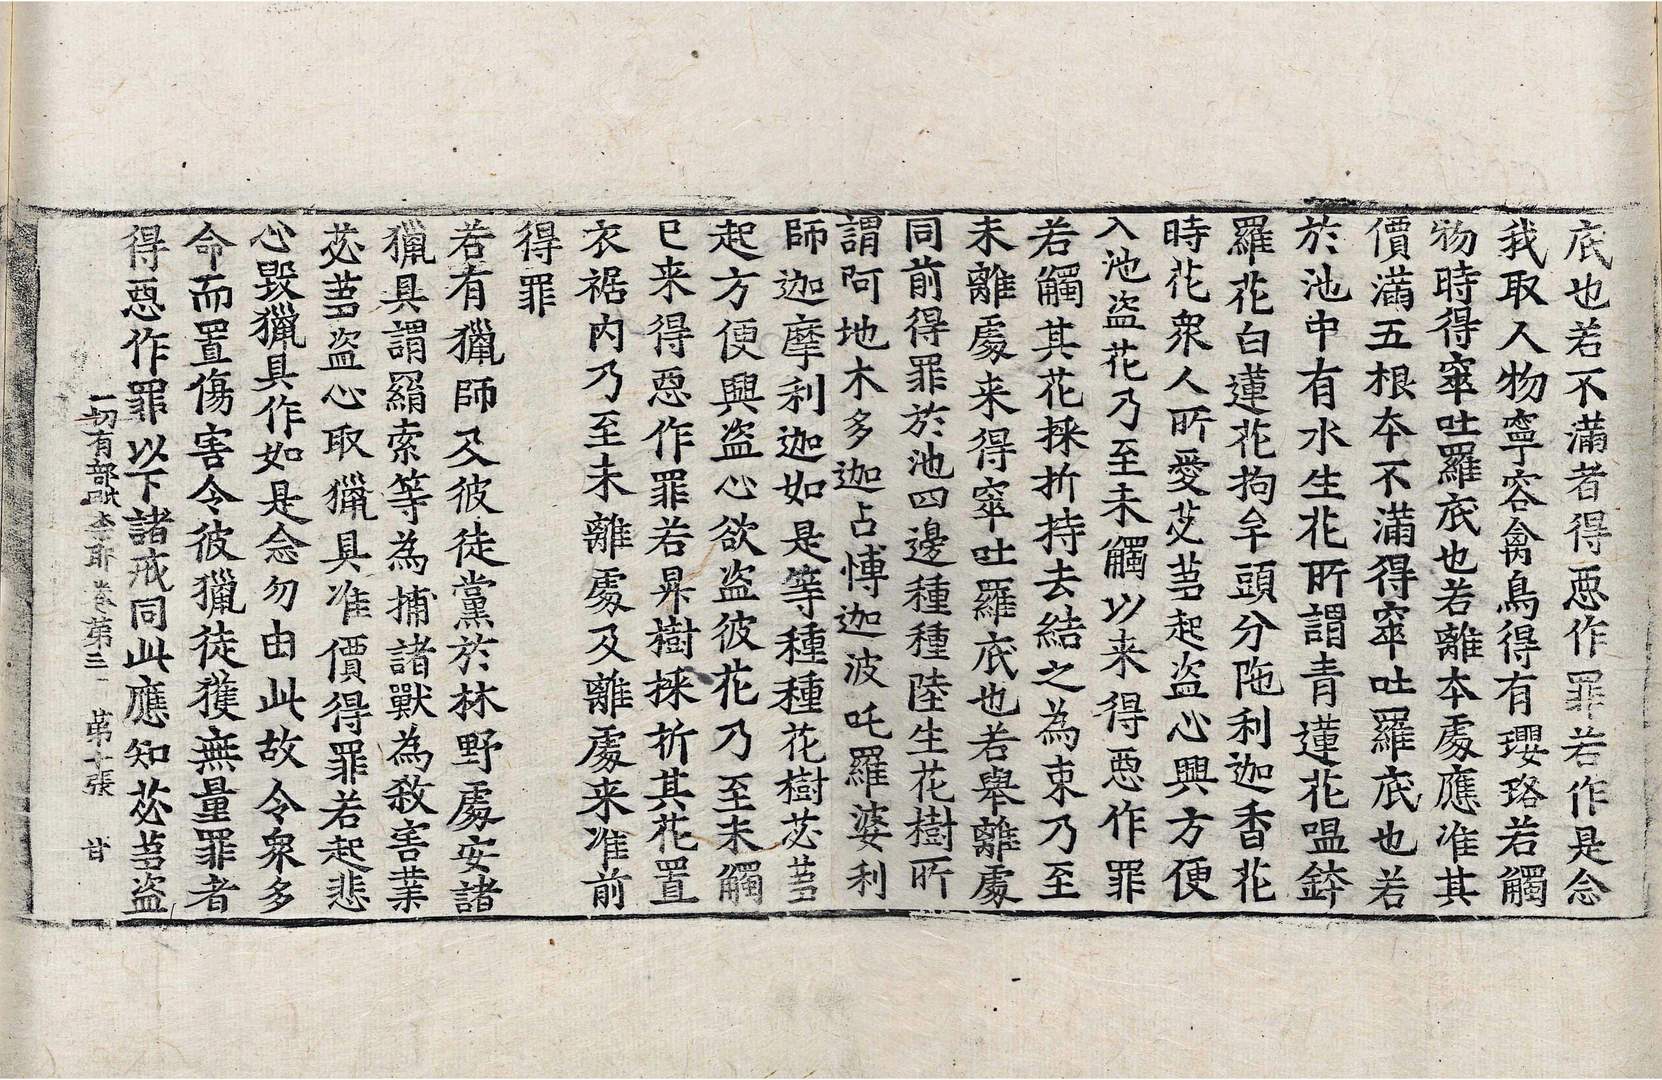 底也若不滿者得惡作罪若作是念
我取人物寧容禽鳥得有瓔珞若觸
物時得窣吐羅底也若離本處應准其
價滿五根本不滿得窣吐羅底也若
於池中有水生花所謂青蓮花嗢鉢
羅花白蓮花拘牟頭分陁利迦香花
時花衆人所愛苾芻起盜心興方便
入池盜花乃至未觸以来得惡作罪
若觸其花採折持去結之為束乃至
未離處来得窣吐羅底也若舉離處
同前得罪於池四邊種種陸生花樹所
謂阿地木多迦占愽迦波吒羅婆利
師迦摩利迦如是等種種花樹苾芻
起方便興盜心欲盜彼花乃至未觸
已来得惡作罪若昇樹採折其花置
衣裾内乃至未離處及離處来准前
得罪
若有獵師及彼徒黨於林野處安諸
獵具謂羂索等為捕諸獸為敎害業
苾芻盜心取獵具准價得罪若起悲
心毀獵具作如是念勿由此故令衆多
命而置傷害令彼獵徒獲無量罪者
得惡作罪以下諸戒同此應知苾芻盜
一切有部毗奈耶卷第三 第十張 甘